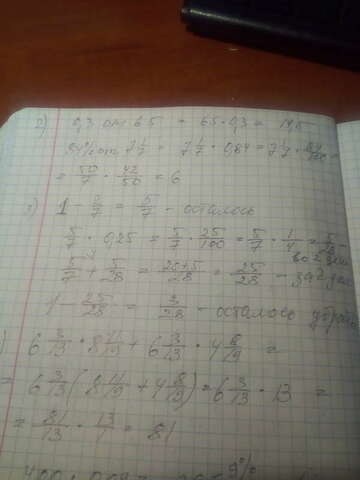 2) 0,3 от 65 = 65 · 0,3 = 19,5
84% от 7 1/7 = 7 1/7 · 0,84 = 7 1/7 ·
= 50/7 · 42/50 = 6
3) 1 - 2/7 = 5/7 - осталось
5/7 · 0,25 = 5/7 · 25/100 = 5/7 · 1/4 = 5/28
5/7 + 5/28 = 20+5/28 = 25/28 - за 2 дня
1 - 25/28 = 3/28 - осталось убрать
) 6 3/13 · 8 11/19 + 6 3/13 · 4 8/19 =
= 6 3/13 (8 11/19 + 4 8/19) = 6 3/13 · 13 =
= 81/13 · 13/1 = 81